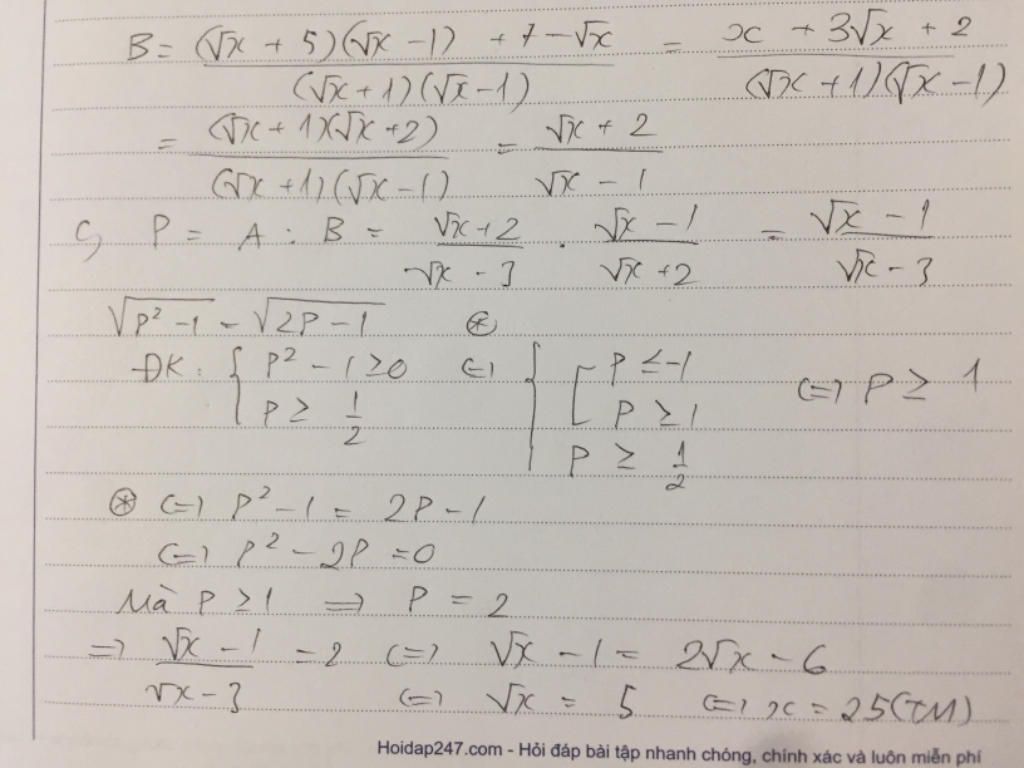 B = ((√x + 5)(√x - 1) + 7 - √x) / ((√x + 1)(√x - 1)) = (x + 3√x + 2) / ((√x + 1)(√x - 1))
= ((√x + 1)(√x + 2)) / ((√x + 1)(√x - 1)) = (√x + 2) / (√x - 1)
c, P = A : B = (√x + 2) / (√x - 3) . (√x - 1) / (√x + 2) = (√x - 1) / (√x - 3)
√(P² - 1) = √(2P - 1) (*)
ĐK: { P² - 1 ≥ 0 ; P ≥ 1/2 (=) { [ P ≤ -1 ; P ≥ 1 ] ; P ≥ 1/2 (=) P ≥ 1
(*) (=) P² - 1 = 2P - 1
(=) P² - 2P = 0
Mà P ≥ 1 => P = 2
=> (√x - 1) / (√x - 3) = 2 (=) √x - 1 = 2√x - 6
(=) √x = 5 (=) x = 25 (TM)
Hoidap247.com - Hỏi đáp bài tập nhanh chóng, chính xác và luôn miễn phí